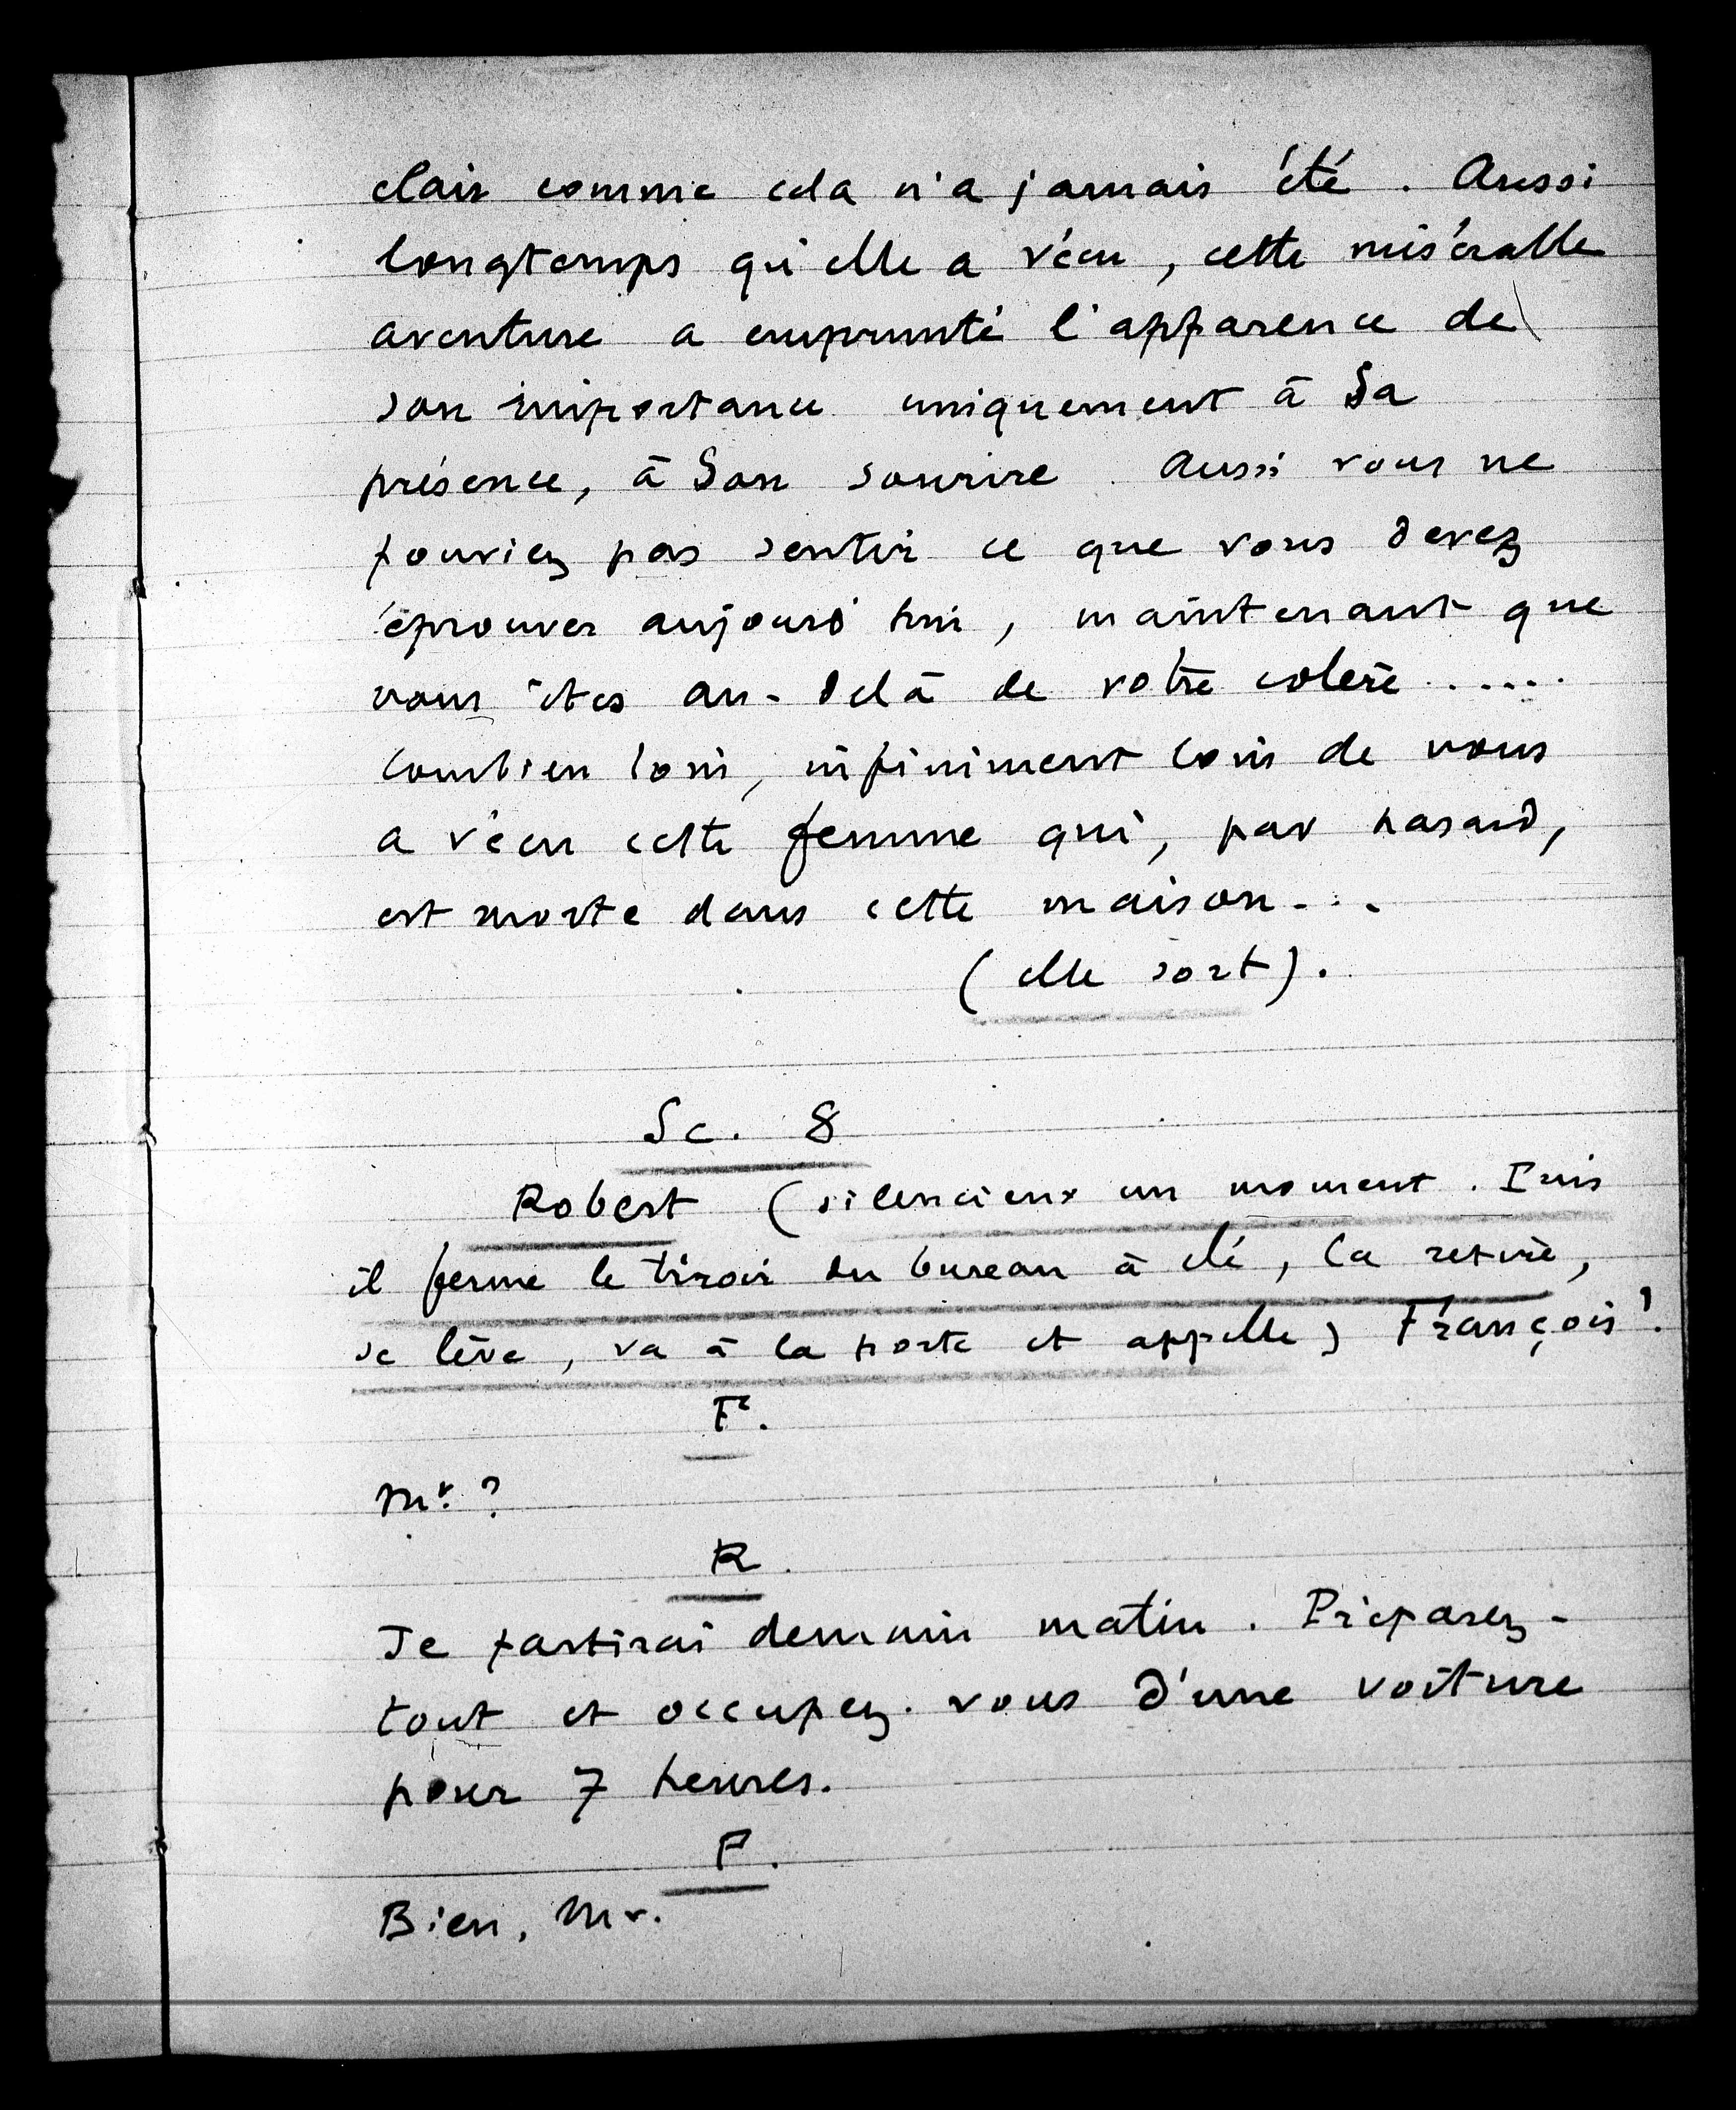 clair comme cela n'a jamais été. Aussi
longtemps qu'elle a vécu, cette misérable
aventure a emprunté l'apparence de
son importance uniquement à Sa
présence, à Son sourire. Aussi vous ne
pouviez pas sentir ce que vous devez
éprouver aujourd'hui, maintenant que
vous êtes au-delà de votre colère .....
Combien loin, infiniment loin de vous
a vécu cette femme qui, par hasard,
est morte dans cette maison...
(elle sort).
Sc. 8
Robert (silencieux un moment. Puis
il ferme le tiroir du bureau à clé, la retire,
se lève, va à la porte et appelle) François!
Fc.
Mr.?
R.
Je partirai demain matin. Préparez-
tout et occupez-vous d'une voiture
pour 7 heures.
F.
Bien, Mr.